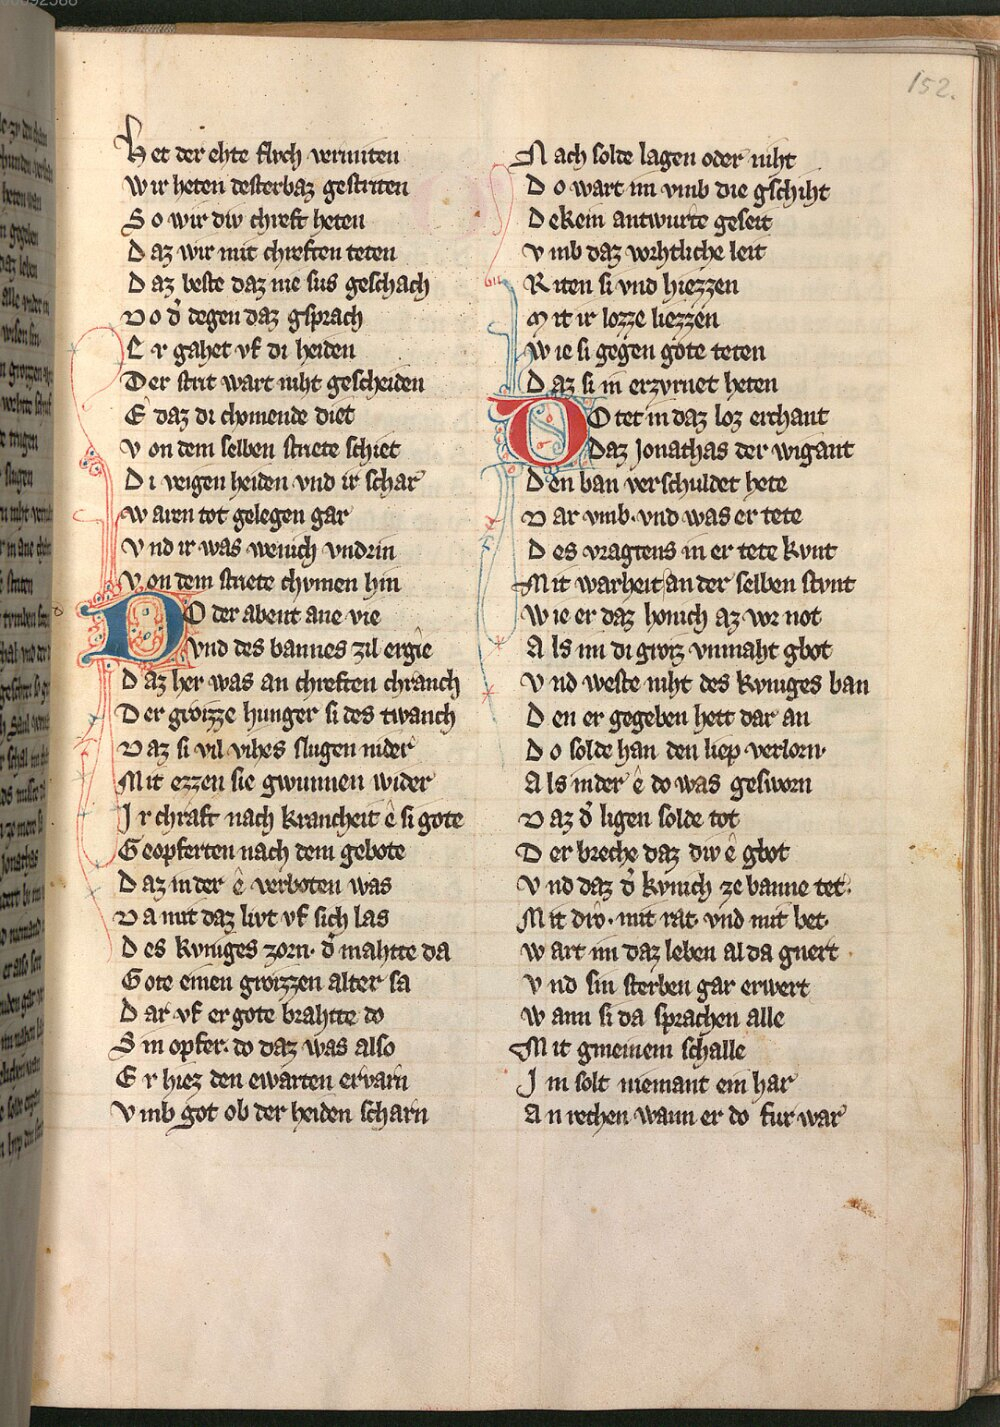 152.
Het der ehte flvch vermiten
Wir heten desterbaz gestriten
So wir div chreft heten
Daz wir mit chreften teten
Daz beste daz nie sus geschach
Do d̾ degen daz gsprach
Er gahet vf di heiden
Der strit wart niht gescheiden
E daz di chomende diet
Von dem selben striete schiet
Di veigen heiden vnd ir schar
Waren tot gelegen gar
Vnd ir was wenich vndrin
Von dem striete chvmen hin
DO der abent ane vie
Vnd des bannes zil ergie
Daz her was an chreften chranch
Der groizze hunger si des twanch
Daz si vil vihes slugen nider
Mit ezzen sie gwunnen wider
Ir chraft nach krancheit ê si gote
Geopferten nach dem gebote
Daz in der ê verboten was
Da mit daz livt vf sich las
Des kvniges zorn· d̾ mahtte da
Gote einen groizzen alter sa
Dar vf er gote brahtte do
Sin opfer· do daz was also
Er hiez den ewarten ervarn
Vmb got ob der heiden scharn
Nach solde iagen oder niht
Do wart im vmb die gschiht
Dekein antwurte geseit
Vmb daz vorhtliche leit
Riten si vnd hiezzen
Mit ir lozze liezzen
Wie si gegen gote teten
Daz si in erzvrnet heten
DO tet in daz loz erchant
Daz Jonathas der wigant
Den ban verschuldet hete
Dar vmb· vnd was er tete
Des vragtens in er tete kvnt
Mit warheit an der selben stvnt
Wie er daz honich az vor not
Als im di groiz vnmaht gbot
Vnd weste niht des kvniges ban
Den er gegeben hett dar an
Do solde han den liep verlorn·
Als in der ê do was gesworn
Daz d̾ ligen solde tot
Der breche daz div ê gbot
Vnd daz d̾ kvnich ze banne tet·
Mit dro· mit rat· vnd mit bet·
Wart im daz leben al da gnert
Vnd sin sterben gar erwert
Wann si da sprachen alle
Mit gmeinem schalle
Im solt niemant ein har
An rechen wann er do fur war